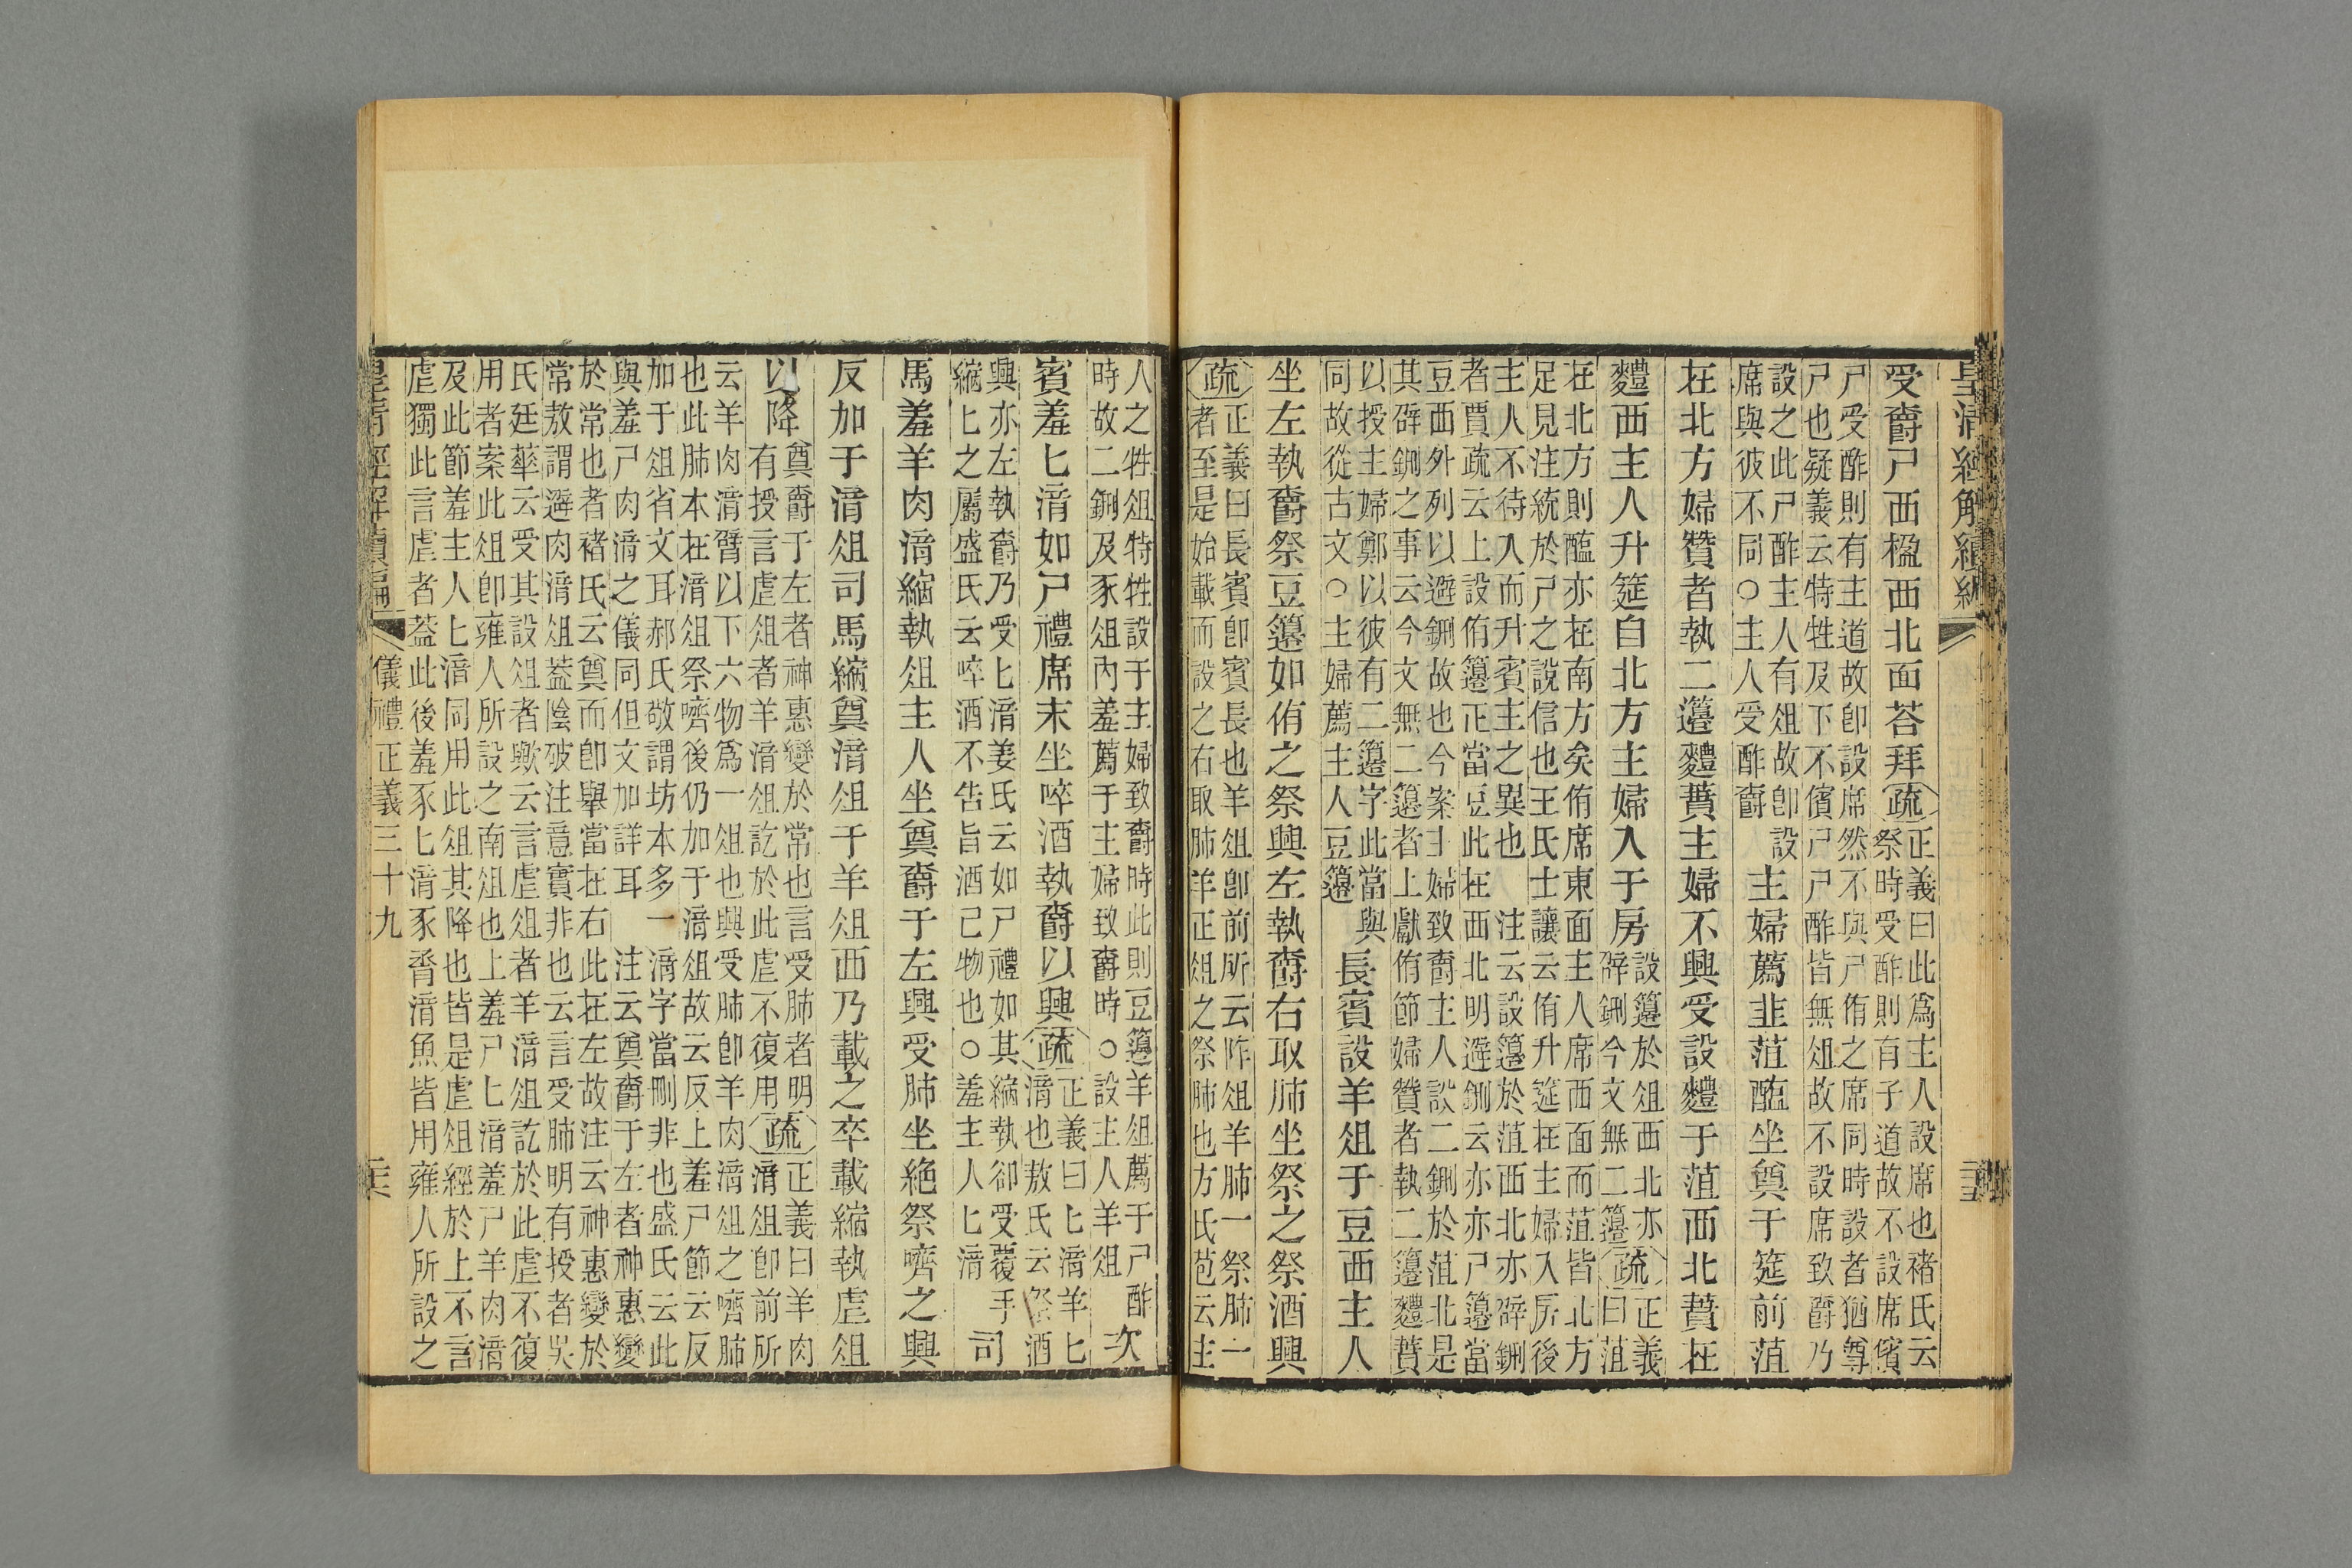 皇清經解續編
受爵尸西楹西北面荅拜疏
正義曰此爲主人設席也褚氏云
祭時受酢則有子道故不設席儐
尸受酢則有主道故卽設席然不與尸侑之席同時設者猶尊
尸也疑義云特牲及下不儐尸尸酢皆無俎故不設席致爵乃
設之此尸酢主人有俎故卽設
席與彼不同○主人受酢爵
主婦薦韭菹醢坐奠于筵前菹
在北方婦贊者執二籩麷蕡主婦不興受設麷于菹西北蕡在
麷西主人升筵自北方主婦入于房
設籩於俎西北亦
辟鉶今文無二籩
疏
正義
曰菹
在北方則醢亦在南方矣侑席東面主人席西面而菹皆北方
足見注統於尸之說信也王氏士讓云侑升筵在主婦入房後
主人不待入而升賓主之異也 注云設籩於菹西北亦辟鉶
者賈疏云上設侑籩正當豆此在西北明遊鉶云亦亦尸籩當
豆西外列以遊鉶故也今案主婦致爵主人設二鉶於菹北是
其辟鉶之事云今文無二籩者上獻侑節婦贊者執二籩麷蕡
以授主婦鄭以彼有二籩字此當與
同故從古文○主婦薦主人豆籩
長賓設羊俎于豆西主人
坐左執爵祭豆籩如侑之祭興左執爵右取肺坐祭之祭酒興
疏
正義曰長賓卽賓長也羊俎卽前所云阼俎羊肺一祭肺一
者至是始載而設之右取肺羊正俎之祭肺也方氏苞云主
人之牲俎特牲設于主婦致爵時此則豆籩羊俎薦于尸酢
時故二鉶及豕俎內羞薦于主婦致爵時○設主人羊俎
次
賓羞匕湆如尸禮席末坐啐酒執爵以興疏
正義曰匕湆羊匕
湆也敖氏云祭酒
興亦左執爵乃受匕湆姜氏云如尸禮如其縮執卻受覆手
縮匕之屬盛氏云啐酒不告旨酒己物也○羞主人匕湆
司
馬羞羊肉湆縮執俎主人坐奠爵于左興受肺坐絕祭嚌之興
反加于湆俎司馬縮奠湆俎于羊俎西乃載之卒載縮執虛俎
以降
奠爵于左者神惠變於常也言受肺者明
有授言虛俎者羊湆俎訖於此虛不復用
疏
正義曰羊肉
湆俎卽前所
云羊肉湆臂以下六物爲一俎也興受肺卽羊肉湆俎之嚌肺
也此肺本在湆俎祭嚌後仍加于湆俎故云反上羞尸節云反
加于俎省文耳郝氏敬謂坊本多一湆字當刪非也盛氏云此
與羞尸肉湆之儀同但文加詳耳 注云奠爵于左者神惠變
於常也者褚氏云奠而卽舉當在右此在左故注云神惠變於
常敖謂遊肉湆俎葢陰破注意實非也云言受肺明有授者吳
氏廷華云受其設俎者歟云言虛俎者羊湆俎訖於此虛不復
用者案此俎卽雍人所設之南俎也上羞尸匕湆羞尸羊肉湆
及此節羞主人匕湆同用此俎其降也皆是虛俎經於上不言
虛獨此言虛者葢此後羞豕匕湆豕脀湆魚皆用雍人所設之
皇清經解續編 儀禮正義三十九